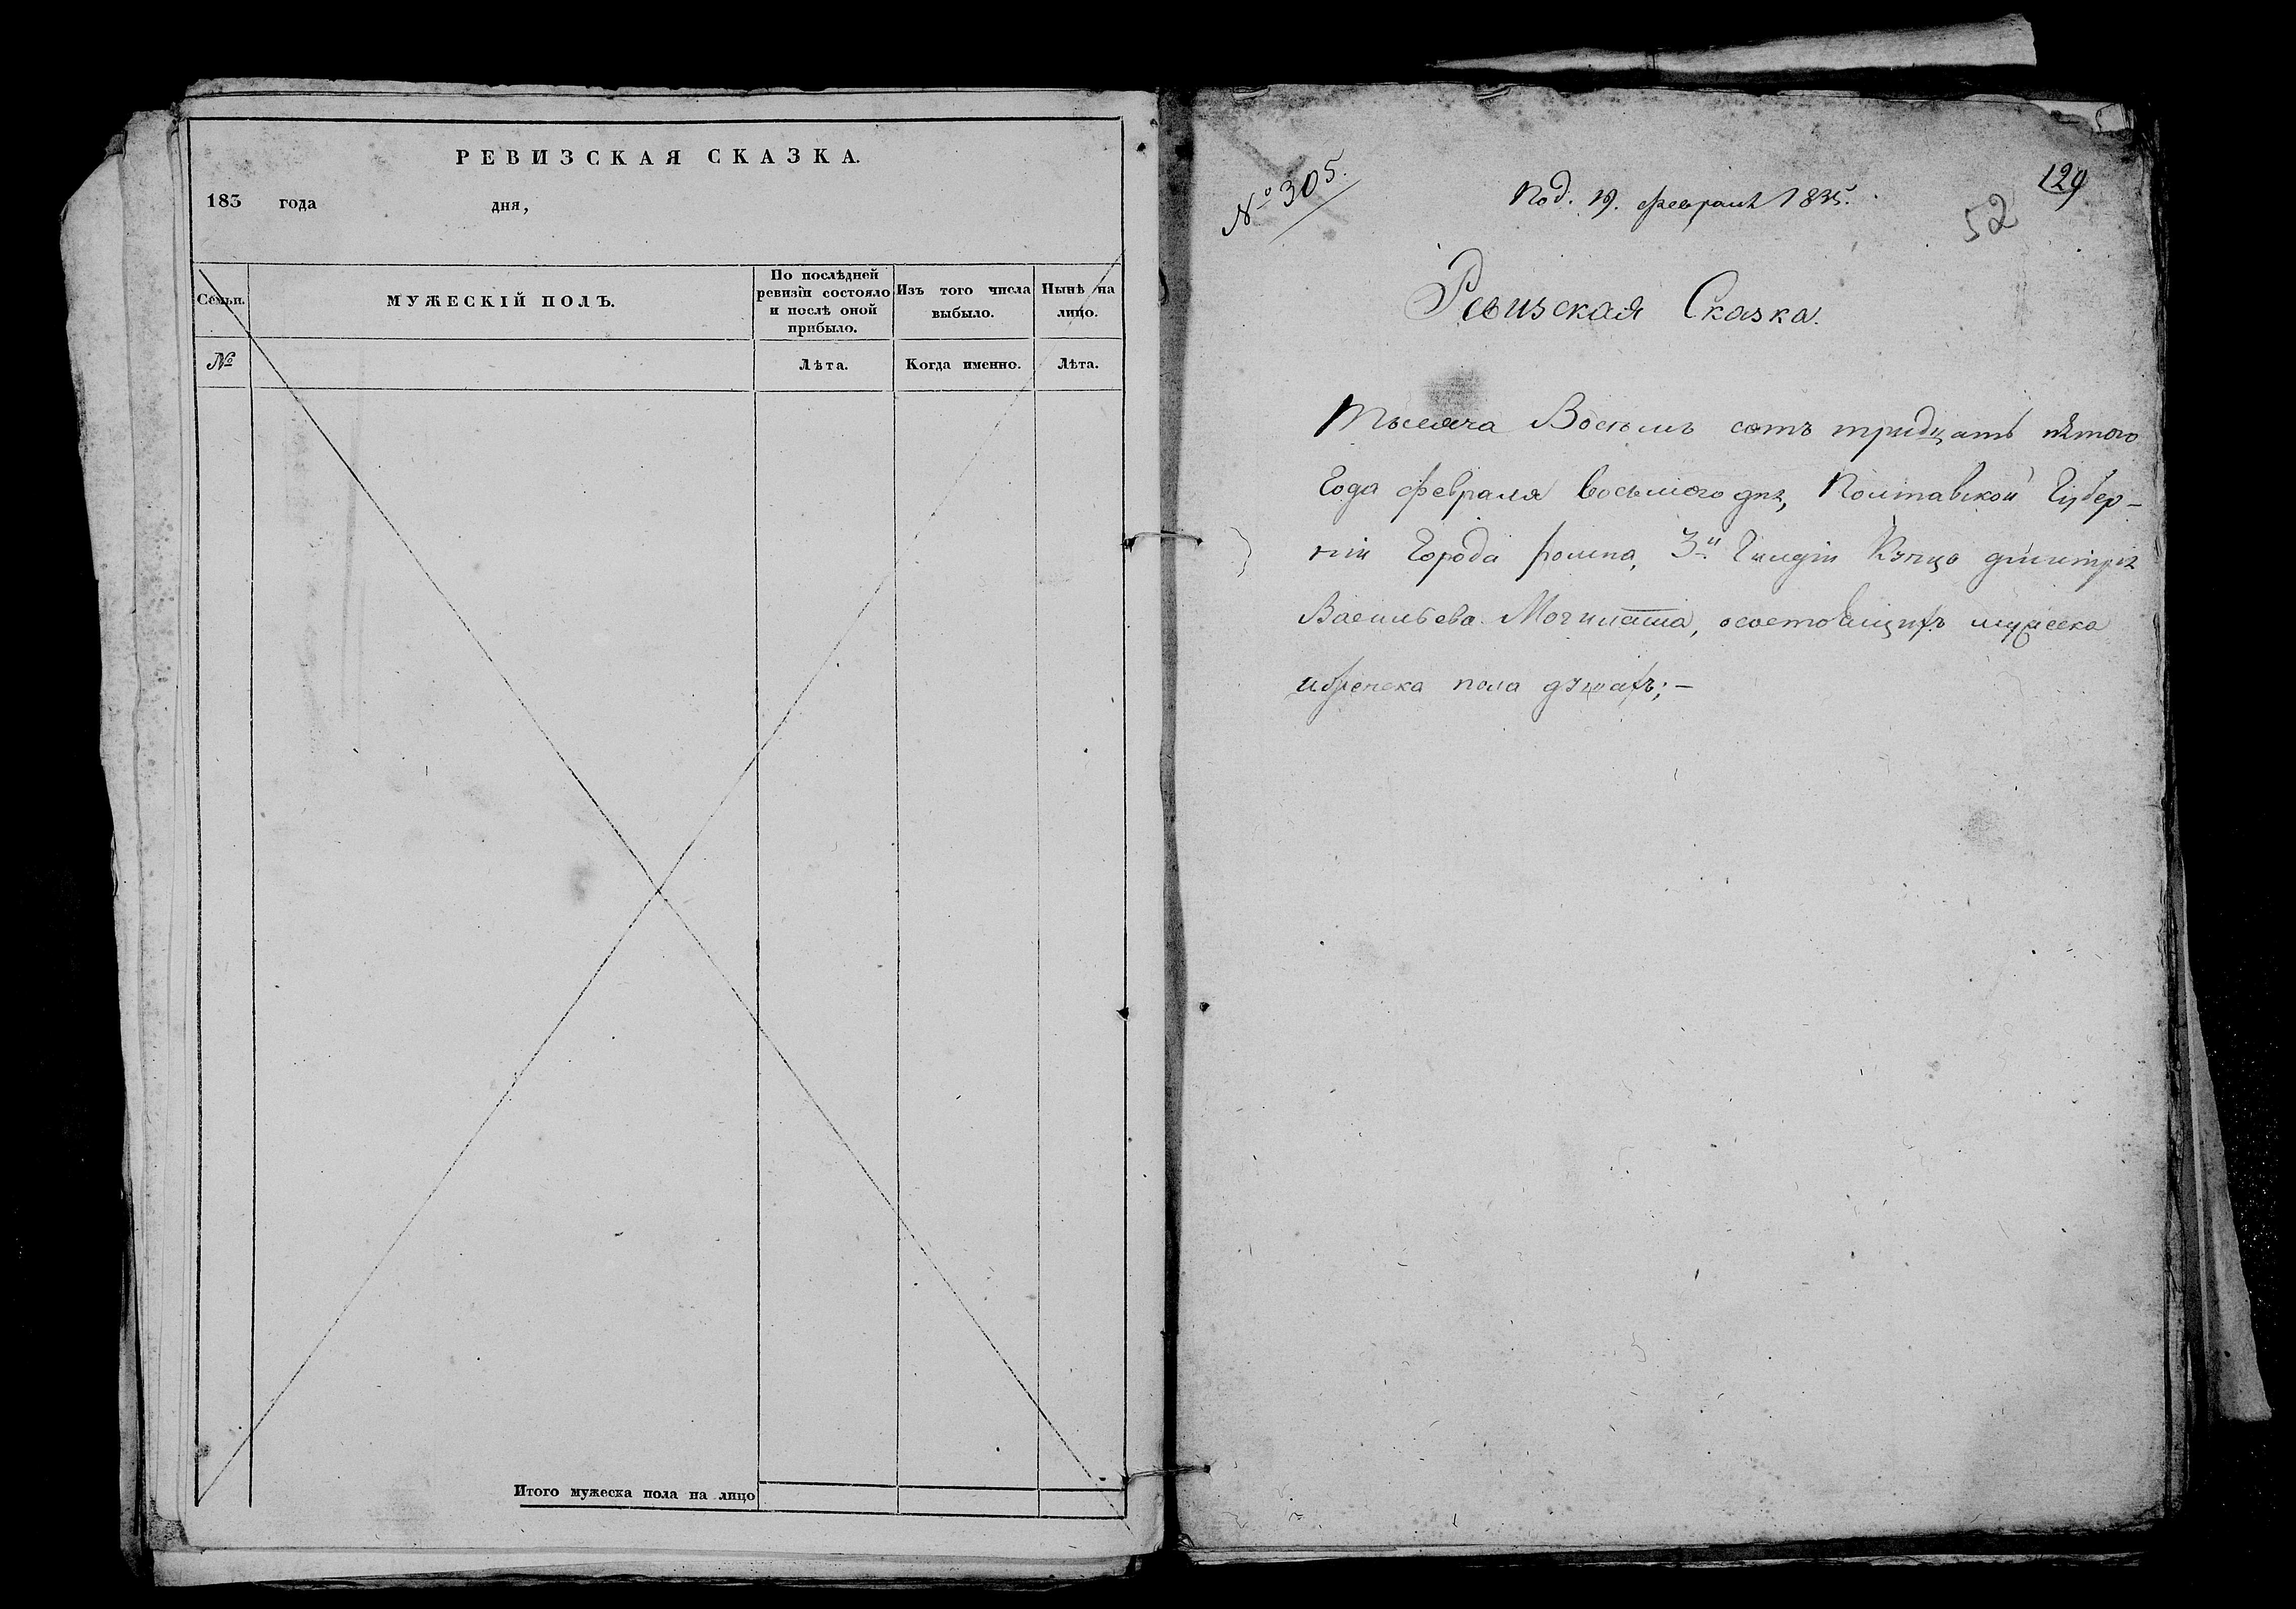 РЕВИЗСКАЯ СКАЗКА.
183 года дня,
Семьи.
МУЖЕСКІЙ ПОЛЪ.
По послѣдней
ревизіи состояло
и послѣ оной
прибыло.
Изъ того числа
выбыло.
Нынѣ на
лицо.
№
Лѣта.
Когда именно.
Лѣта.
Итого мужеска пола на лицо
№ 305.
Под. 19. февраля 1835.
129
52
Ревизская Сказка.
Тысяча Восемь сотъ тридцать пятого
Года февраля восьмого дня, Полтавской Губер-
ніи Города ромна, 3й Гилдіи Купца дмитрія
Васильева, осостоящихъ мужеска
иженска пола душахъ;—